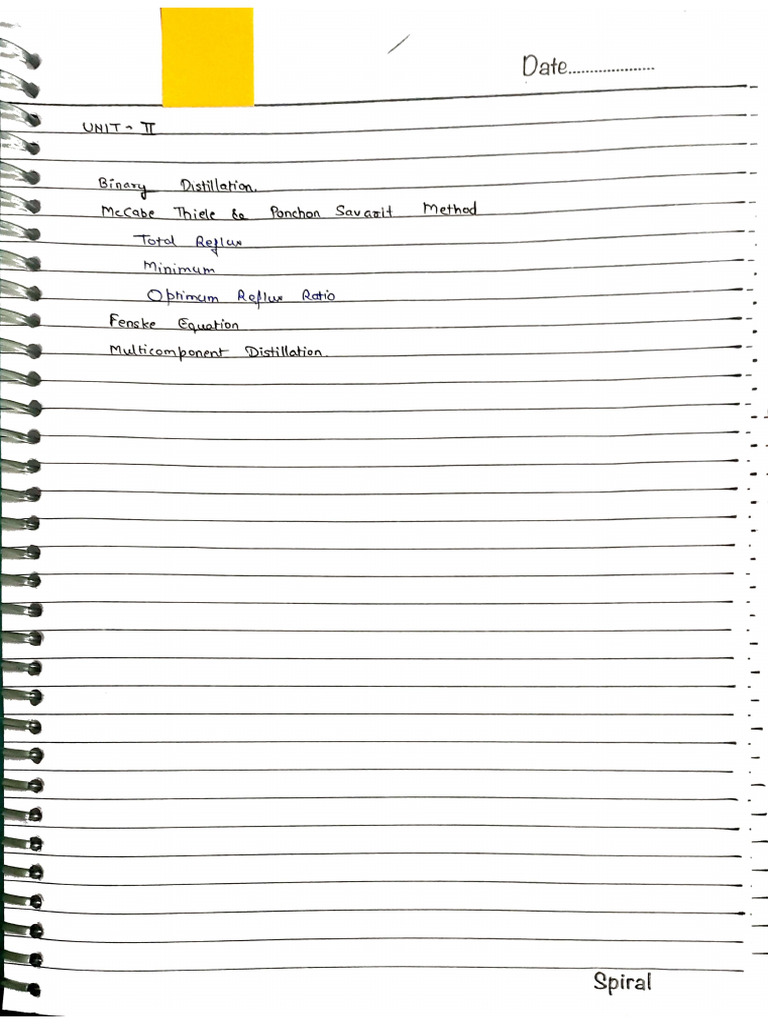 Date....................
UNIT - II
Binary Distillation.
McCabe Thiele & Ponchon Savarit Method
Total Reflux
Minimum
Optimum Reflux Ratio
Fenske Equation
Multicomponent Distillation.
Spiral